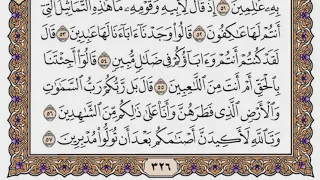 بِهِۦ عَٰلِمِينَ ٥١ إِذْ قَالَ لِأَبِيهِ وَقَوْمِهِۦ مَا هَٰذِهِ ٱلتَّمَاثِيلُ ٱلَّتِىٓ
أَنتُمْ لَهَا عَٰكِفُونَ ٥٢ قَالُوا۟ وَجَدْنَآ ءَابَآءَنَا لَهَا عَٰبِدِينَ ٥٣ قَالَ
لَقَدْ كُنتُمْ أَنتُمْ وَءَابَآؤُكُمْ فِى ضَلَٰلٍ مُّبِينٍ ٥٤ قَالُوٓا۟ أَجِئْتَنَا
بِٱلْحَقِّ أَمْ أَنتَ مِنَ ٱللَّٰعِبِينَ ٥٥ قَالَ بَل رَّبُّكُمْ رَبُّ ٱلسَّمَٰوَٰتِ
وَٱلْأَرْضِ ٱلَّذِى فَطَرَهُنَّ وَأَنَا۠ عَلَىٰ ذَٰلِكُم مِّنَ ٱلشَّٰهِدِينَ ٥٦
وَتَٱللَّهِ لَأَكِيدَنَّ أَصْنَٰمَكُم بَعْدَ أَن تُوَلُّوا۟ مُدْبِرِينَ ٥٧
٣٢٦